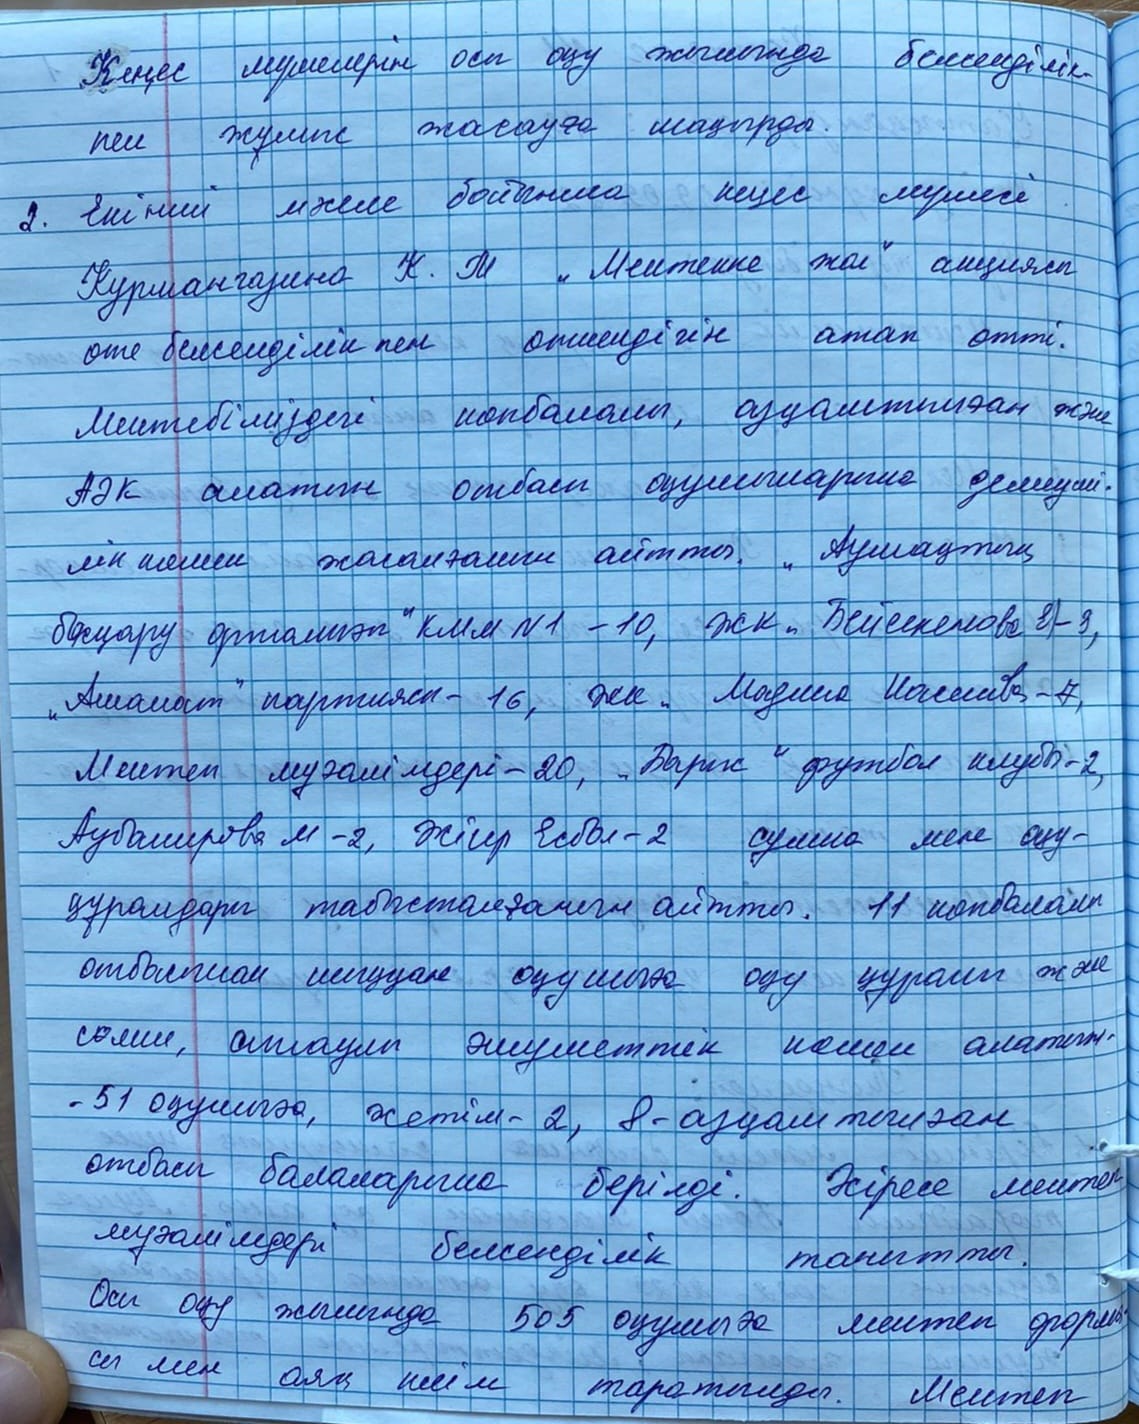 Кеңес мүшелерін осы оқу жылында белсенділік-
пен жұмыс жасауға шақырды.
2. Екінші мәселе бойынша кеңес мүшесі
Курмангазина К. М "Мектепке жол" акциясы
өте белсенділікпен өткендігін атап өтті.
Мектебіміздегі көпбалалы, азқамтылған және
АӘК алатын отбасы оқушыларына демеуші-
лік көмек жасалғанын айтты. "Аумақтық
басқару орталығы" КММ N1 - 10, жк "Бейсекенова Э)-3,
"Аманат" партиясы - 16, жк " Мадина - 7,
Мектеп мұғалімдері - 20, "Барыс" футбол клубы - 2,
Аубакирова М - 2, Жігер Есбол - 2 сумка мен оқу-
құралдары табысталғанын айтты. 11 көпбалалы
отбасынан шыққан оқушыға оқу құралы және
сөмке, атаулы әлеуметтік көмек алатын-
-51 оқушыға, жетім - 2, 8 - азқамтылған
отбасы балаларына берілді. Әсіресе мектеп
мұғалімдері белсенділік танытты.
Осы оқу жылында 505 оқушыға мектеп формa-
сы мен аяқ киім таратылды. Мектеп